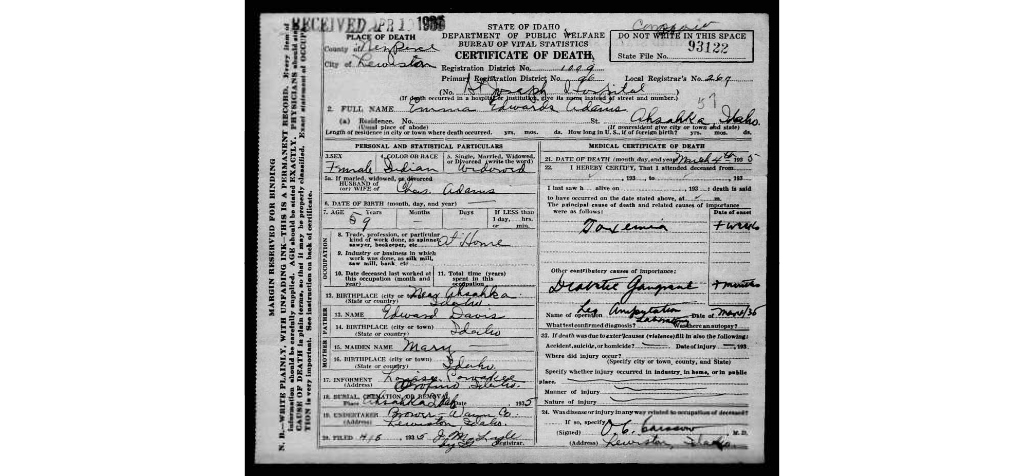 RECEIVED APR 1 1935
STATE OF IDAHO
DEPARTMENT OF PUBLIC WELFARE
BUREAU OF VITAL STATISTICS
CERTIFICATE OF DEATH
DO NOT WRITE IN THIS SPACE
93122
State File No.
PLACE OF DEATH
County of Nez Perce
City of Lewiston
Registration District No. 1009
Primary Registration District No. 96 Local Registrar's No. 269
(No. St Joseph Hospital
(If death occurred in a hospital or institution, give its name instead of street and number.)
57
2. FULL NAME Emma Edwards Adams
(a) Residence. No. St. Ahsahka, Idaho.
(Usual place of abode) (If nonresident give city or town and state)
Length of residence in city or town where death occurred. yrs. mos. ds. How long in U. S., if of foreign birth? yrs. mos. ds.
PERSONAL AND STATISTICAL PARTICULARS
3. SEX 4. COLOR OR RACE 5. Single, Married, Widowed, or Divorced (write the word)
Female Indian Widowed
5a. If married, widowed, or divorced
HUSBAND of
(or) WIFE of Chas. Adams
6. DATE OF BIRTH (month, day, and year)
7. AGE Years Months Days If LESS than 1 day, hrs. or min.
59
OCCUPATION
8. Trade, profession, or particular
kind of work done, as spinner,
sawyer, bookkeeper, etc. At Home
9. Industry or business in which
work was done, as silk mill,
saw mill, bank, etc.
10. Date deceased last worked at this occupation (month and year)
11. Total time (years) spent in this occupation
12. BIRTHPLACE (city or town) Near Ahsahka
(State or country) Idaho.
FATHER
13. NAME Edward Davis
14. BIRTHPLACE (city or town) Idaho
(State or country)
MOTHER
15. MAIDEN NAME Mary
16. BIRTHPLACE (city or town) Idaho.
(State or country)
17. INFORMENT Louise
(Address) Orofino Idaho.
18. BURIAL, CREMATION OR REMOVAL
Place Ahsahka Date 1935
19. UNDERTAKER Brower-Wann Co.
(Address) Lewiston, Idaho.
20. FILED 4/8 1935 Registrar.
MEDICAL CERTIFICATE OF DEATH
21. DATE OF DEATH (month, day, and year) March 4th 1935
22. I HEREBY CERTIFY, That I attended deceased from
, 193 , to , 193
I last saw h alive on , 193 ; death is said
to have occurred on the date stated above, at m.
The principal cause of death and related causes of importance
were as follows: Date of onset
Toxemia
Other contributory causes of importance:
Diabetic Gangrene
Name of operation Leg Amputation Date of
What test confirmed diagnosis? Laboratory Was there an autopsy?
23. If death was due to external causes (violence) fill in also the following:
Accident, suicide, or homicide? Date of injury 193
Where did injury occur?
(Specify city or town, county, and State)
Specify whether injury occurred in industry, in home, or in public
place.
Manner of injury
Nature of injury
24. Was disease or injury in any way related to occupation of deceased?
If so, specify
(Signed) O. C. Carssow, M. D.
(Address) Lewiston, Idaho.
MARGIN RESERVED FOR BINDING
N. B.—WRITE PLAINLY, WITH UNFADING INK—THIS IS A PERMANENT RECORD. Every item of
information should be carefully supplied. AGE should be stated EXACTLY. PHYSICIANS should state
CAUSE OF DEATH in plain terms, so that it may be properly classified. Exact statement of OCCUPA-
TION is very important. See instruction on back of certificate.